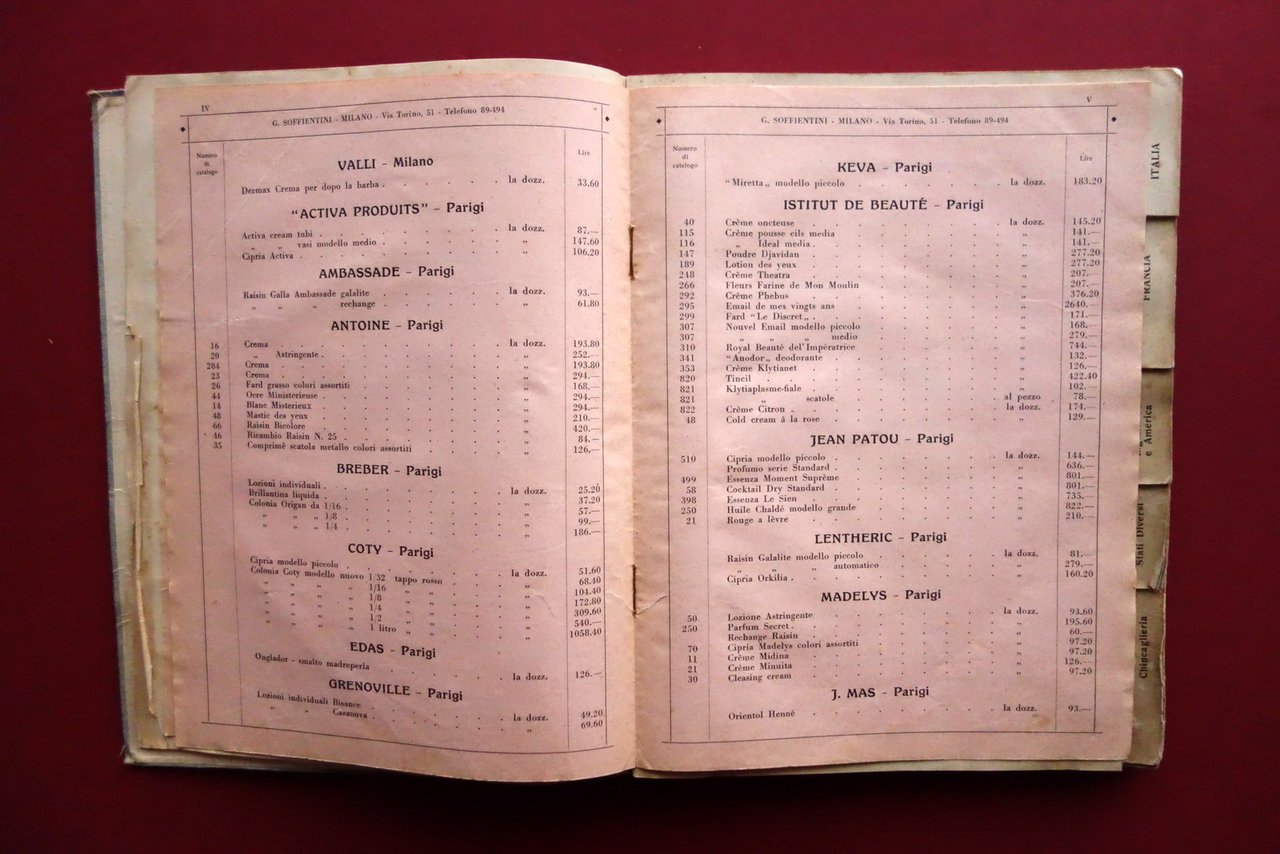 IV
G. SOFFIENTINI - MILANO - Via Torino, 51 - Telefono 89-494
Numero di catalogo
Lire
VALLI - Milano
Dermax Crema per dopo la barba . . . . . . la dozz. 33.60
"ACTIVA PRODUITS" - Parigi
Activa cream tubi . . . . . . la dozz. 87.—
„ „ vasi modello medio . . . . . . „ 147.60
Cipria Activa . . . . . . „ 106.20
AMBASSADE - Parigi
Raisin Galla Ambassade galalite . . . . . . la dozz. 93.—
„ „ „ rechange . . . . . . „ 61.80
ANTOINE - Parigi
16 Crema . . . . . . la dozz. 193.80
20 „ Astringente . . . . . . „ 252.—
284 Crema . . . . . . „ 193.80
23 Crema . . . . . . „ 294.—
26 Fard grasso colori assortiti . . . . . . „ 168.—
44 Ocre Ministerieuse . . . . . . „ 294.—
14 Blanc Misterieux . . . . . . „ 294.—
48 Mastic des yeux . . . . . . „ 210.—
66 Raisin Bicolore . . . . . . „ 420.—
46 Ricambio Raisin N. 25 . . . . . . „ 84.—
35 Comprimè scatola metallo colori assortiti . . . . . . „ 126.—
BREBER - Parigi
Lozioni individuali . . . . . . la dozz. 25.20
Brillantina liquida . . . . . . „ 37.20
Colonia Origan da 1/16 . . . . . . „ 57.—
„ „ „ 1/8 . . . . . . „ 99.—
„ „ „ 1/4 . . . . . . „ 186.—
COTY - Parigi
Cipria modello piccolo . . . . . . la dozz. 51.60
Colonia Coty modello nuovo 1/32 tappo rosso . . . . . . „ 68.40
„ „ „ „ 1/16 „ „ . . . . . . „ 104.40
„ „ „ „ 1/8 „ „ . . . . . . „ 172.80
„ „ „ „ 1/4 „ „ . . . . . . „ 309.60
„ „ „ „ 1/2 „ „ . . . . . . „ 540.—
„ „ „ „ 1 litro „ „ . . . . . . „ 1058.40
EDAS - Parigi
Onglador - smalto madreperla . . . . . . la dozz. 126.—
GRENOVILLE - Parigi
Lozioni individuali Bisance . . . . . . la dozz. 49.20
„ „ Casanova . . . . . . „ 69.60
V
G. SOFFIENTINI - MILANO - Via Torino, 51 - Telefono 89-494
Numero di catalogo
Lire
KEVA - Parigi
"Miretta„ modello piccolo . . . . . . la dozz. 183.20
ISTITUT DE BEAUTÉ - Parigi
40 Crème oncteuse . . . . . . la dozz. 145.20
115 Crème pousse cils media . . . . . . „ 141.—
116 „ Ideal media . . . . . . „ 141.—
147 Poudre Djavidan . . . . . . „ 277.20
189 Lotion des yeux . . . . . . „ 277.20
248 Crème Theatra . . . . . . „ 207.—
266 Fleurs Farine de Mon Moulin . . . . . . „ 207.—
292 Crème Phebus . . . . . . „ 376.20
295 Email de mes vingts ans . . . . . . „ 2640.—
299 Fard "Le Discret„ . . . . . . „ 171.—
307 Nouvel Email modello piccolo . . . . . . „ 168.—
307 „ „ „ medio . . . . . . „ 279.—
310 Royal Beauté del'Impératrice . . . . . . „ 744.—
341 "Anodor„ deodorante . . . . . . „ 132.—
353 Crème Klytianet . . . . . . „ 126.—
820 Tincil . . . . . . „ 422.40
821 Klytiaplasme-fiale . . . . . . „ 102.—
821 „ scatole . . . . . . al pezzo 78.—
822 Crème Citron . . . . . . la dozz. 174.—
48 Cold cream à la rose . . . . . . „ 129.—
JEAN PATOU - Parigi
510 Cipria modello piccolo . . . . . . la dozz. 144.—
Profumo serie Standard . . . . . . „ 636.—
499 Essenza Moment Suprême . . . . . . „ 801.—
58 Cocktail Dry Standard . . . . . . „ 801.—
398 Essenza Le Sien . . . . . . „ 735.—
250 Huile Chaldé modello grande . . . . . . „ 822.—
21 Rouge a lèvre . . . . . . „ 210.—
LENTHERIC - Parigi
Raisin Galalite modello piccolo . . . . . . la dozz. 81.—
„ „ „ automatico . . . . . . „ 279.—
Cipria Orkilia . . . . . . „ 160.20
MADELYS - Parigi
50 Lozione Astringente . . . . . . la dozz. 93.60
250 Parfum Secret . . . . . . „ 195.60
Rechange Raisin . . . . . . „ 60.—
70 Cipria Madelys colori assortiti . . . . . . „ 97.20
11 Crème Midina . . . . . . „ 97.20
21 Crème Minuita . . . . . . „ 126.—
30 Cleasing cream . . . . . . „ 97.20
J. MAS - Parigi
Orientol Henné . . . . . . la dozz. 93.—
ITALIA
FRANCIA
e America
Stati Diversi
Chincaglieria